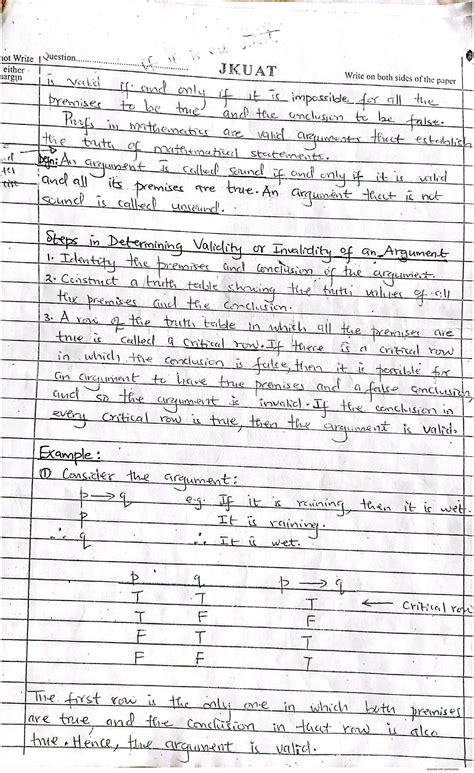 if it is not
not Write Question
JKUAT
either
Write on both sides of the paper
margin
is valid iff and only if it is impossible for all the
premises to be true and the conclusion to be false.
Proofs in mathematics are valid arguments that establish
the truth of mathematical statements.
Defn: An argument is called sound if and only if it is valid
and all its premises are true. An argument that is not
sound is called unsound.
Steps in Determining Validity or Invalidity of an Argument
1. Identify the premises and conclusion of the argument.
2. Construct a truth table showing the truth values of all
the premises and the conclusion.
3. A row of the truth table in which all the premises are
true is called a critical row. If there is a critical row
in which the conclusion is false, then it is possible for
an argument to have true premises and a false conclusion
and so the argument is invalid. If the conclusion in
every critical row is true, then the argument is valid.
Example:
① Consider the argument:
p → q e.g. If it is raining, then it is wet.
p It is raining.
∴ q ∴ It is wet.
p q p → q
T T T ← Critical row
T F F
F T T
F F T
The first row is the only one in which both premises
are true and the conclusion in that row is also
true. Hence, the argument is valid.